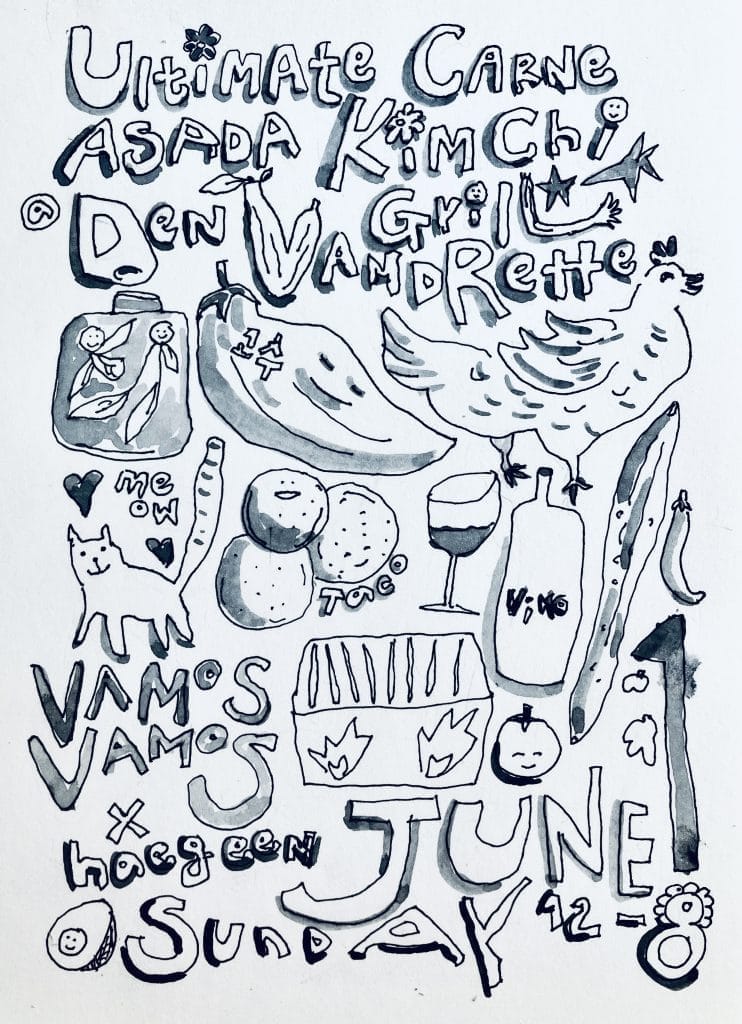 ULtiMAte CARNE
ASADA KiMChi
GRiLL
@ DeN VANDRette
고수
Me
oW
Taco
ViNo
VAMoS
VAMoS
X
haegeen
JUNE 1
SUNDAY 12-8